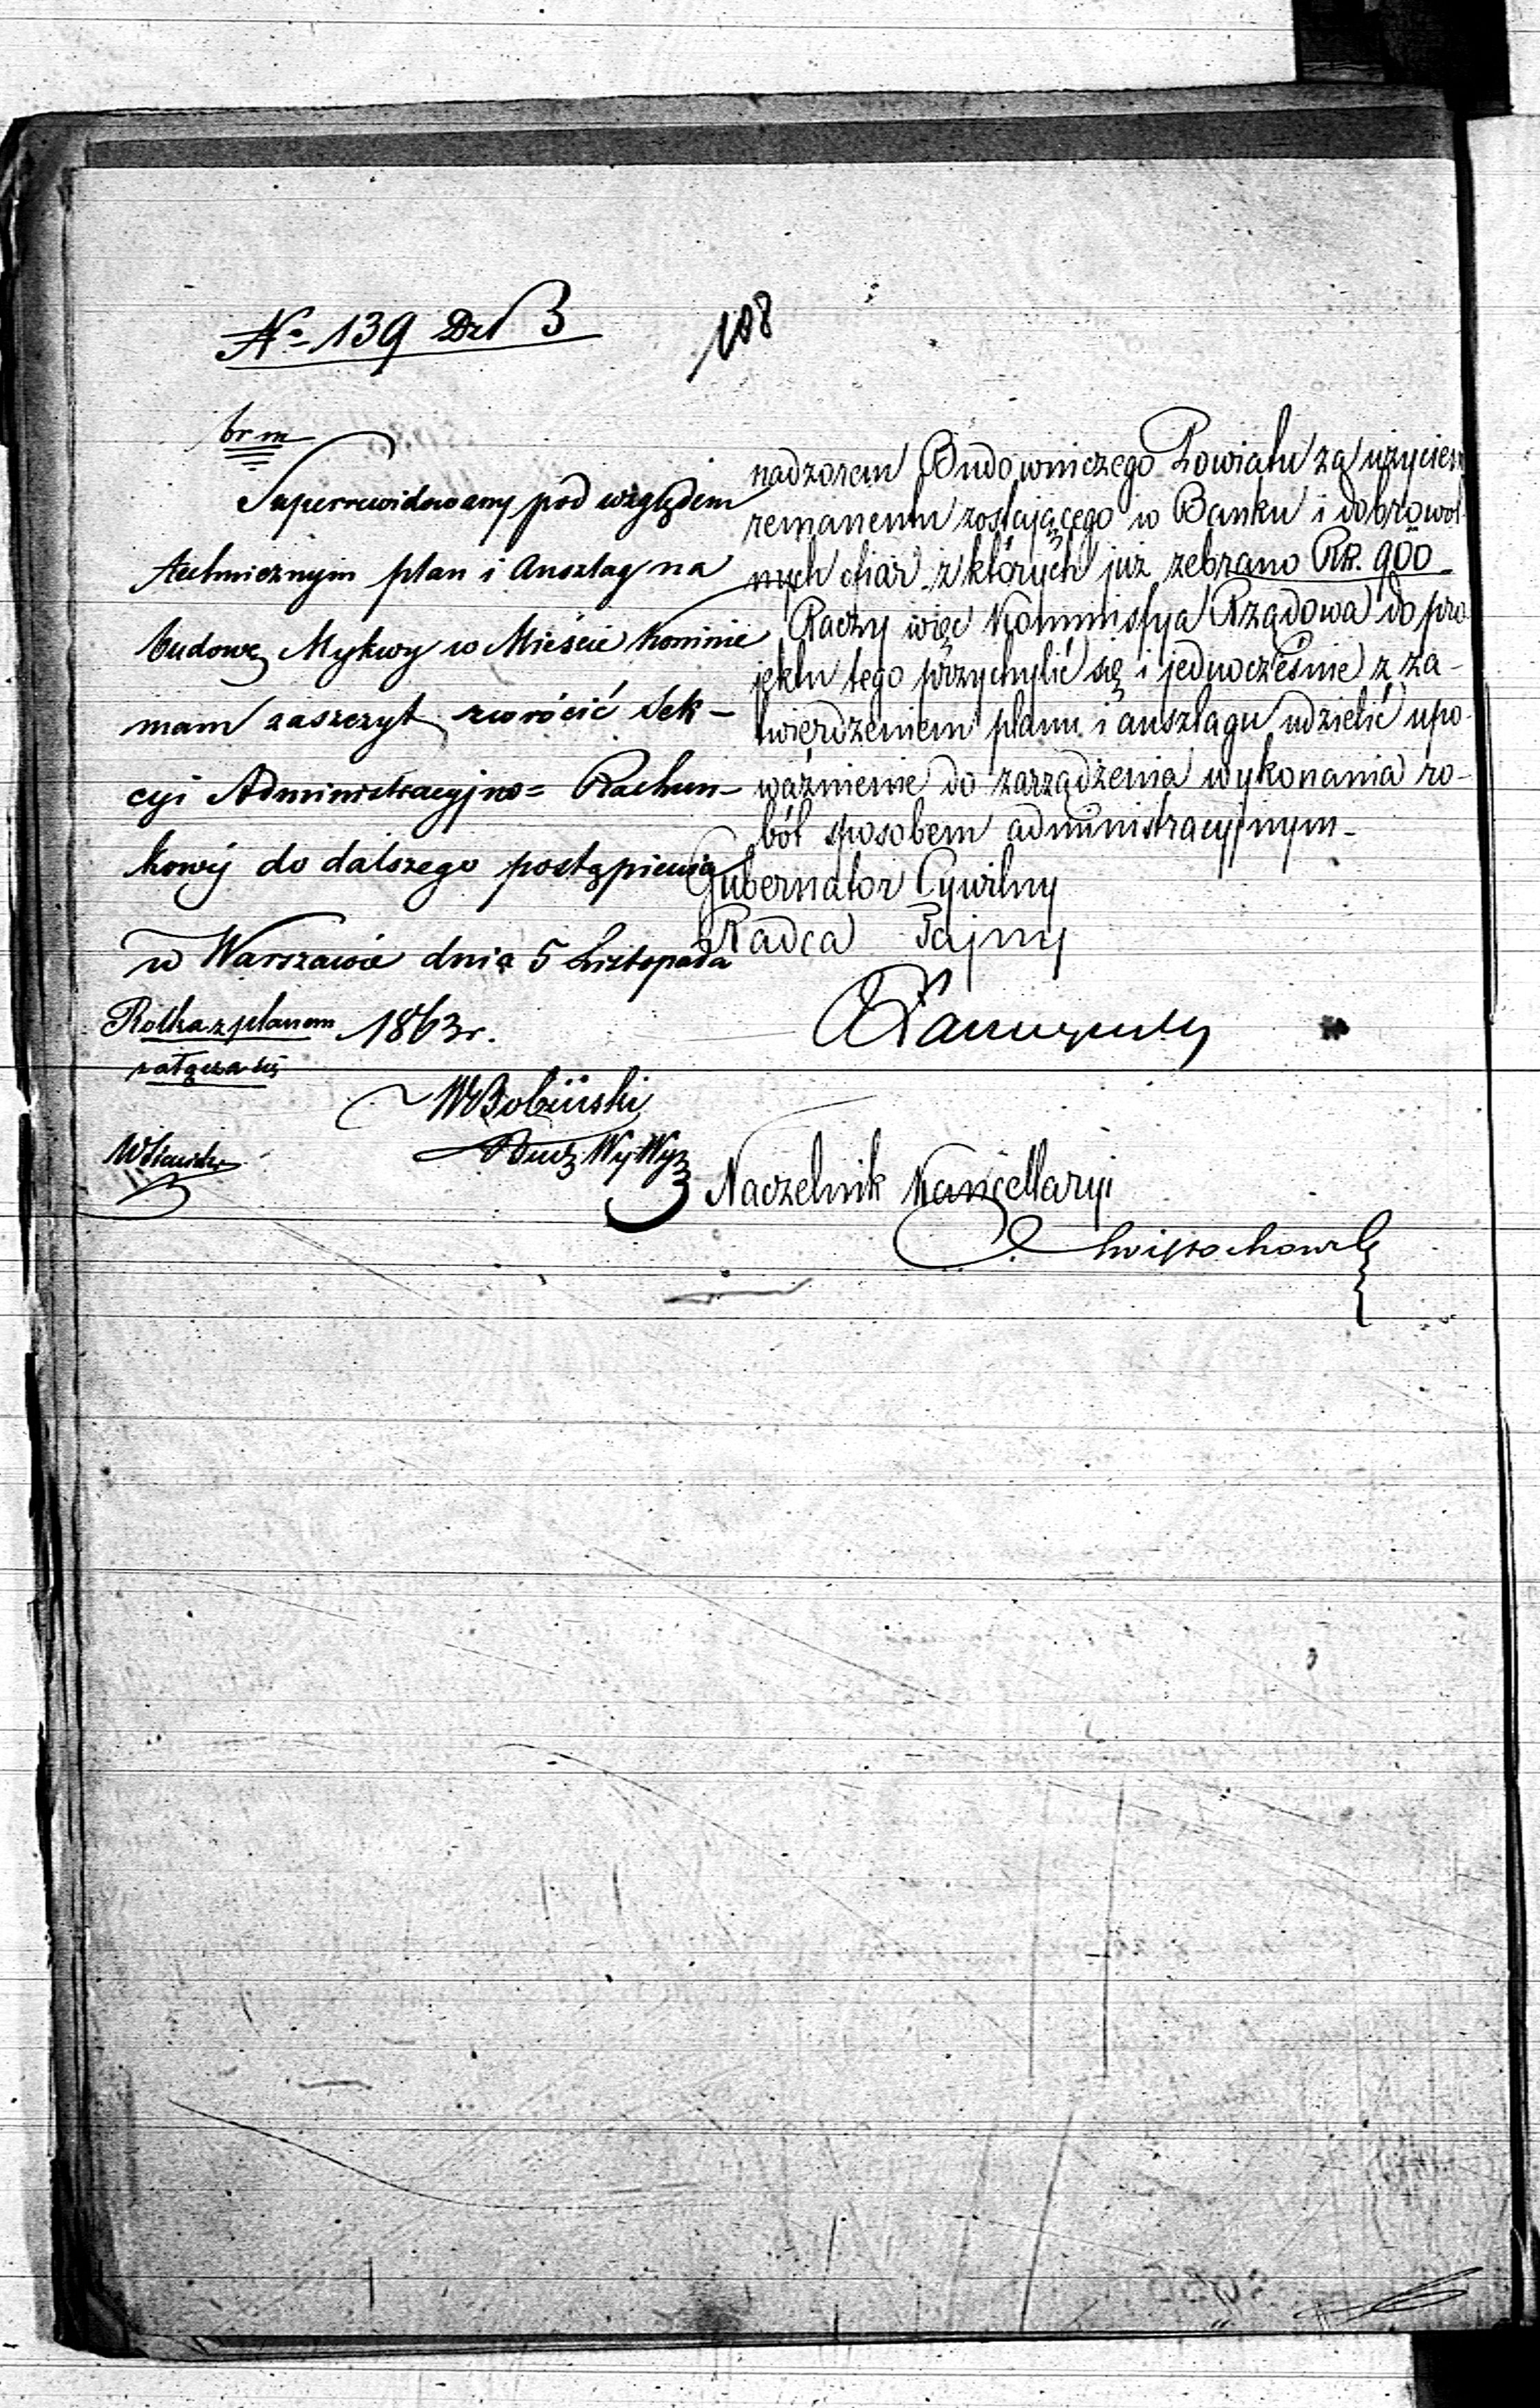 № 139 Dzł 3
108
br m
Superrewidowany pod względem
technicznym plan i Anszlag na
budowę Mykwy w Mieście Koninie
mam zaszczyt zwrócić Sek-
cyi Administracyjno= Rachun-
kowéj do dalszego postąpienia
w Warszawie dnia 5 Listopada
1863 r.
Rolka z planem
załącza się
WBobiński
Bud: Wy Wyz
nadzorem Budowniczego Powiatu za użyciem
remanentu zostającego w Banku i dobrowol-
nych ofiar z których już zebrano RS. 900
Raczy więc Kommissya Rządowa do pro
jektu tego przychylić się i jednocześnie z za-
twierdzeniem planu i anszlagu udzielić upo-
ważnienie do zarządzenia wykonania ro-
bót sposobem administracyjnym-
Gubernator Cywilny
Radca Tajny
Naczelnik Kancellaryi